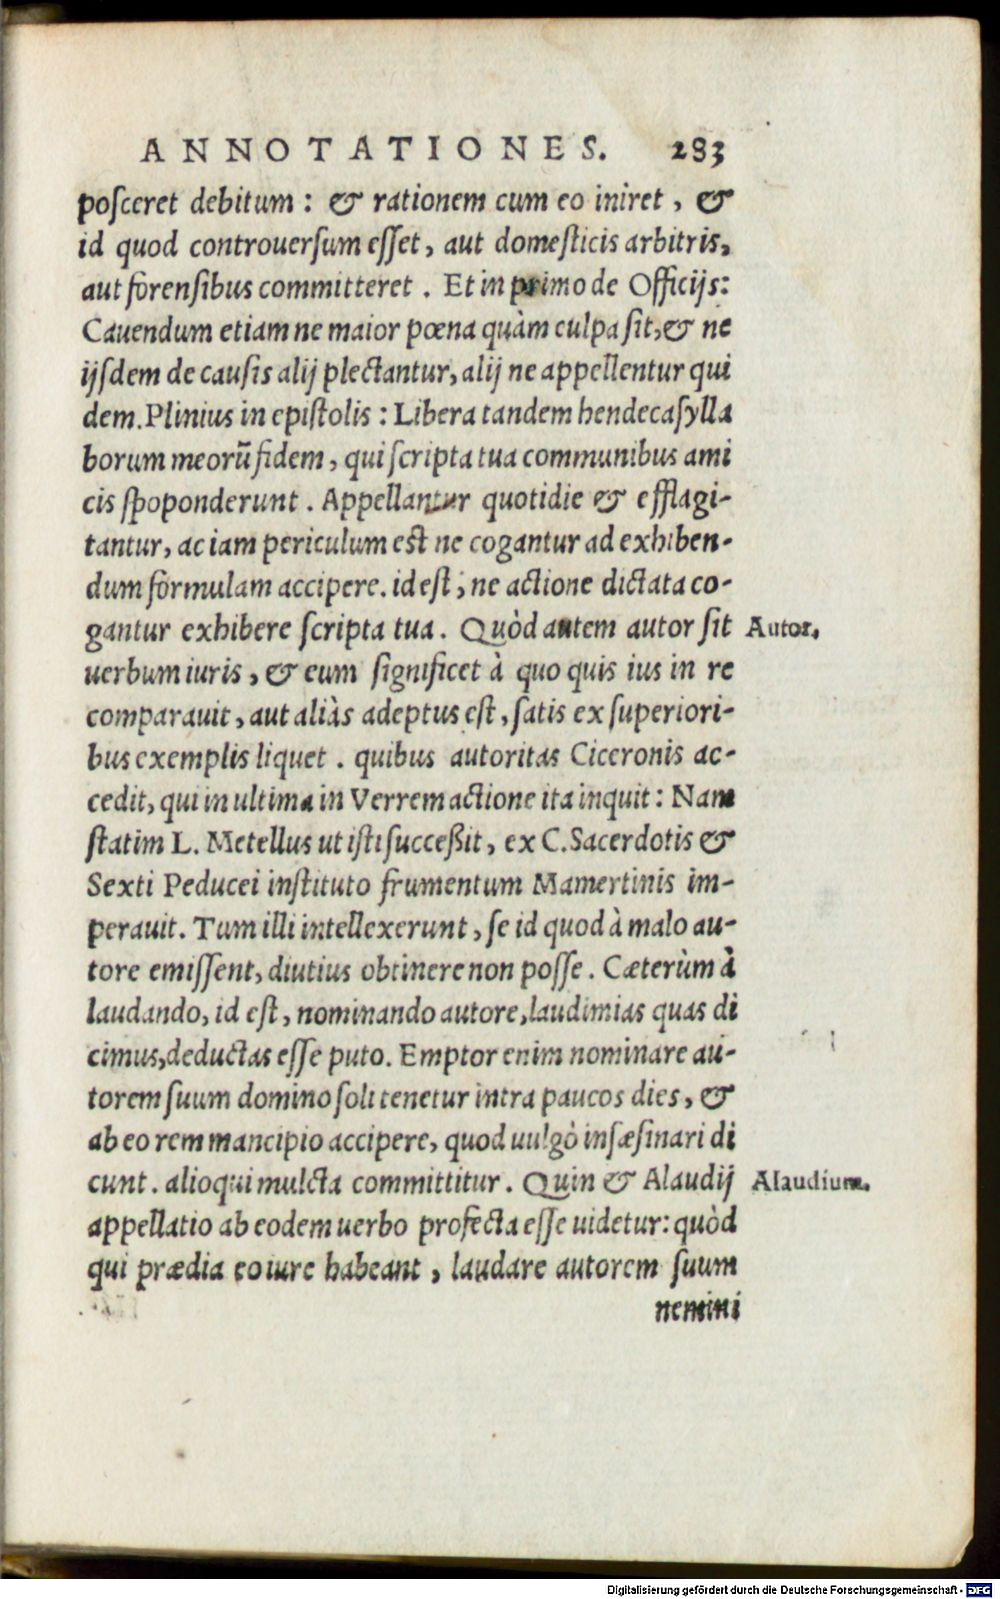 ANNOTATIONES. 283
poſceret debitum : & rationem cum eo iniret , &
id quod controuerſum eſſet, aut domeſticis arbitris,
aut forenſibus committeret . Et in primo de Officijs:
Cauendum etiam ne maior pœna quàm culpa ſit,& ne
ijſdem de cauſis alij plectantur, alij ne appellentur qui
dem. Plinius in epiſtolis : Libera tandem hendecaſylla
borum meorū fidem , qui ſcripta tua communibus ami
cis ſpoponderunt . Appellantur quotidie & efflagi-
tantur, ac iam periculum eſt ne cogantur ad exhiben-
dum formulam accipere. id eſt , ne actione dictata co-
gantur exhibere ſcripta tua . Quòd autem autor ſit Autor.
uerbum iuris , & eum ſignificet à quo quis ius in re
comparauit , aut aliàs adeptus eſt , ſatis ex ſuperiori-
bus exemplis liquet . quibus autoritas Ciceronis ac-
cedit, qui in ultima in Verrem actione ita inquit : Nam
ſtatim L. Metellus ut iſti ſucceßit, ex C. Sacerdotis &
Sexti Peducei inſtituto frumentum Mamertinis im-
perauit. Tum illi intellexerunt , ſe id quod à malo au-
tore emiſſent, diutius obtinere non poſſe . Cæterùm à
laudando, id eſt , nominando autore, laudimias quas di
cimus, deductas eſſe puto. Emptor enim nominare au-
torem ſuum domino ſoli tenetur intra paucos dies , &
ab eo rem mancipio accipere, quod uulgò inſæſinari di
cunt . alioqui mulcta committitur . Quin & Alaudij Alaudium.
appellatio ab eodem uerbo profecta eſſe uidetur: quòd
qui prædia eo iure habeant , laudare autorem ſuum
nemini
Digitalisierung gefördert durch die Deutsche Forschungsgemeinschaft - DFG